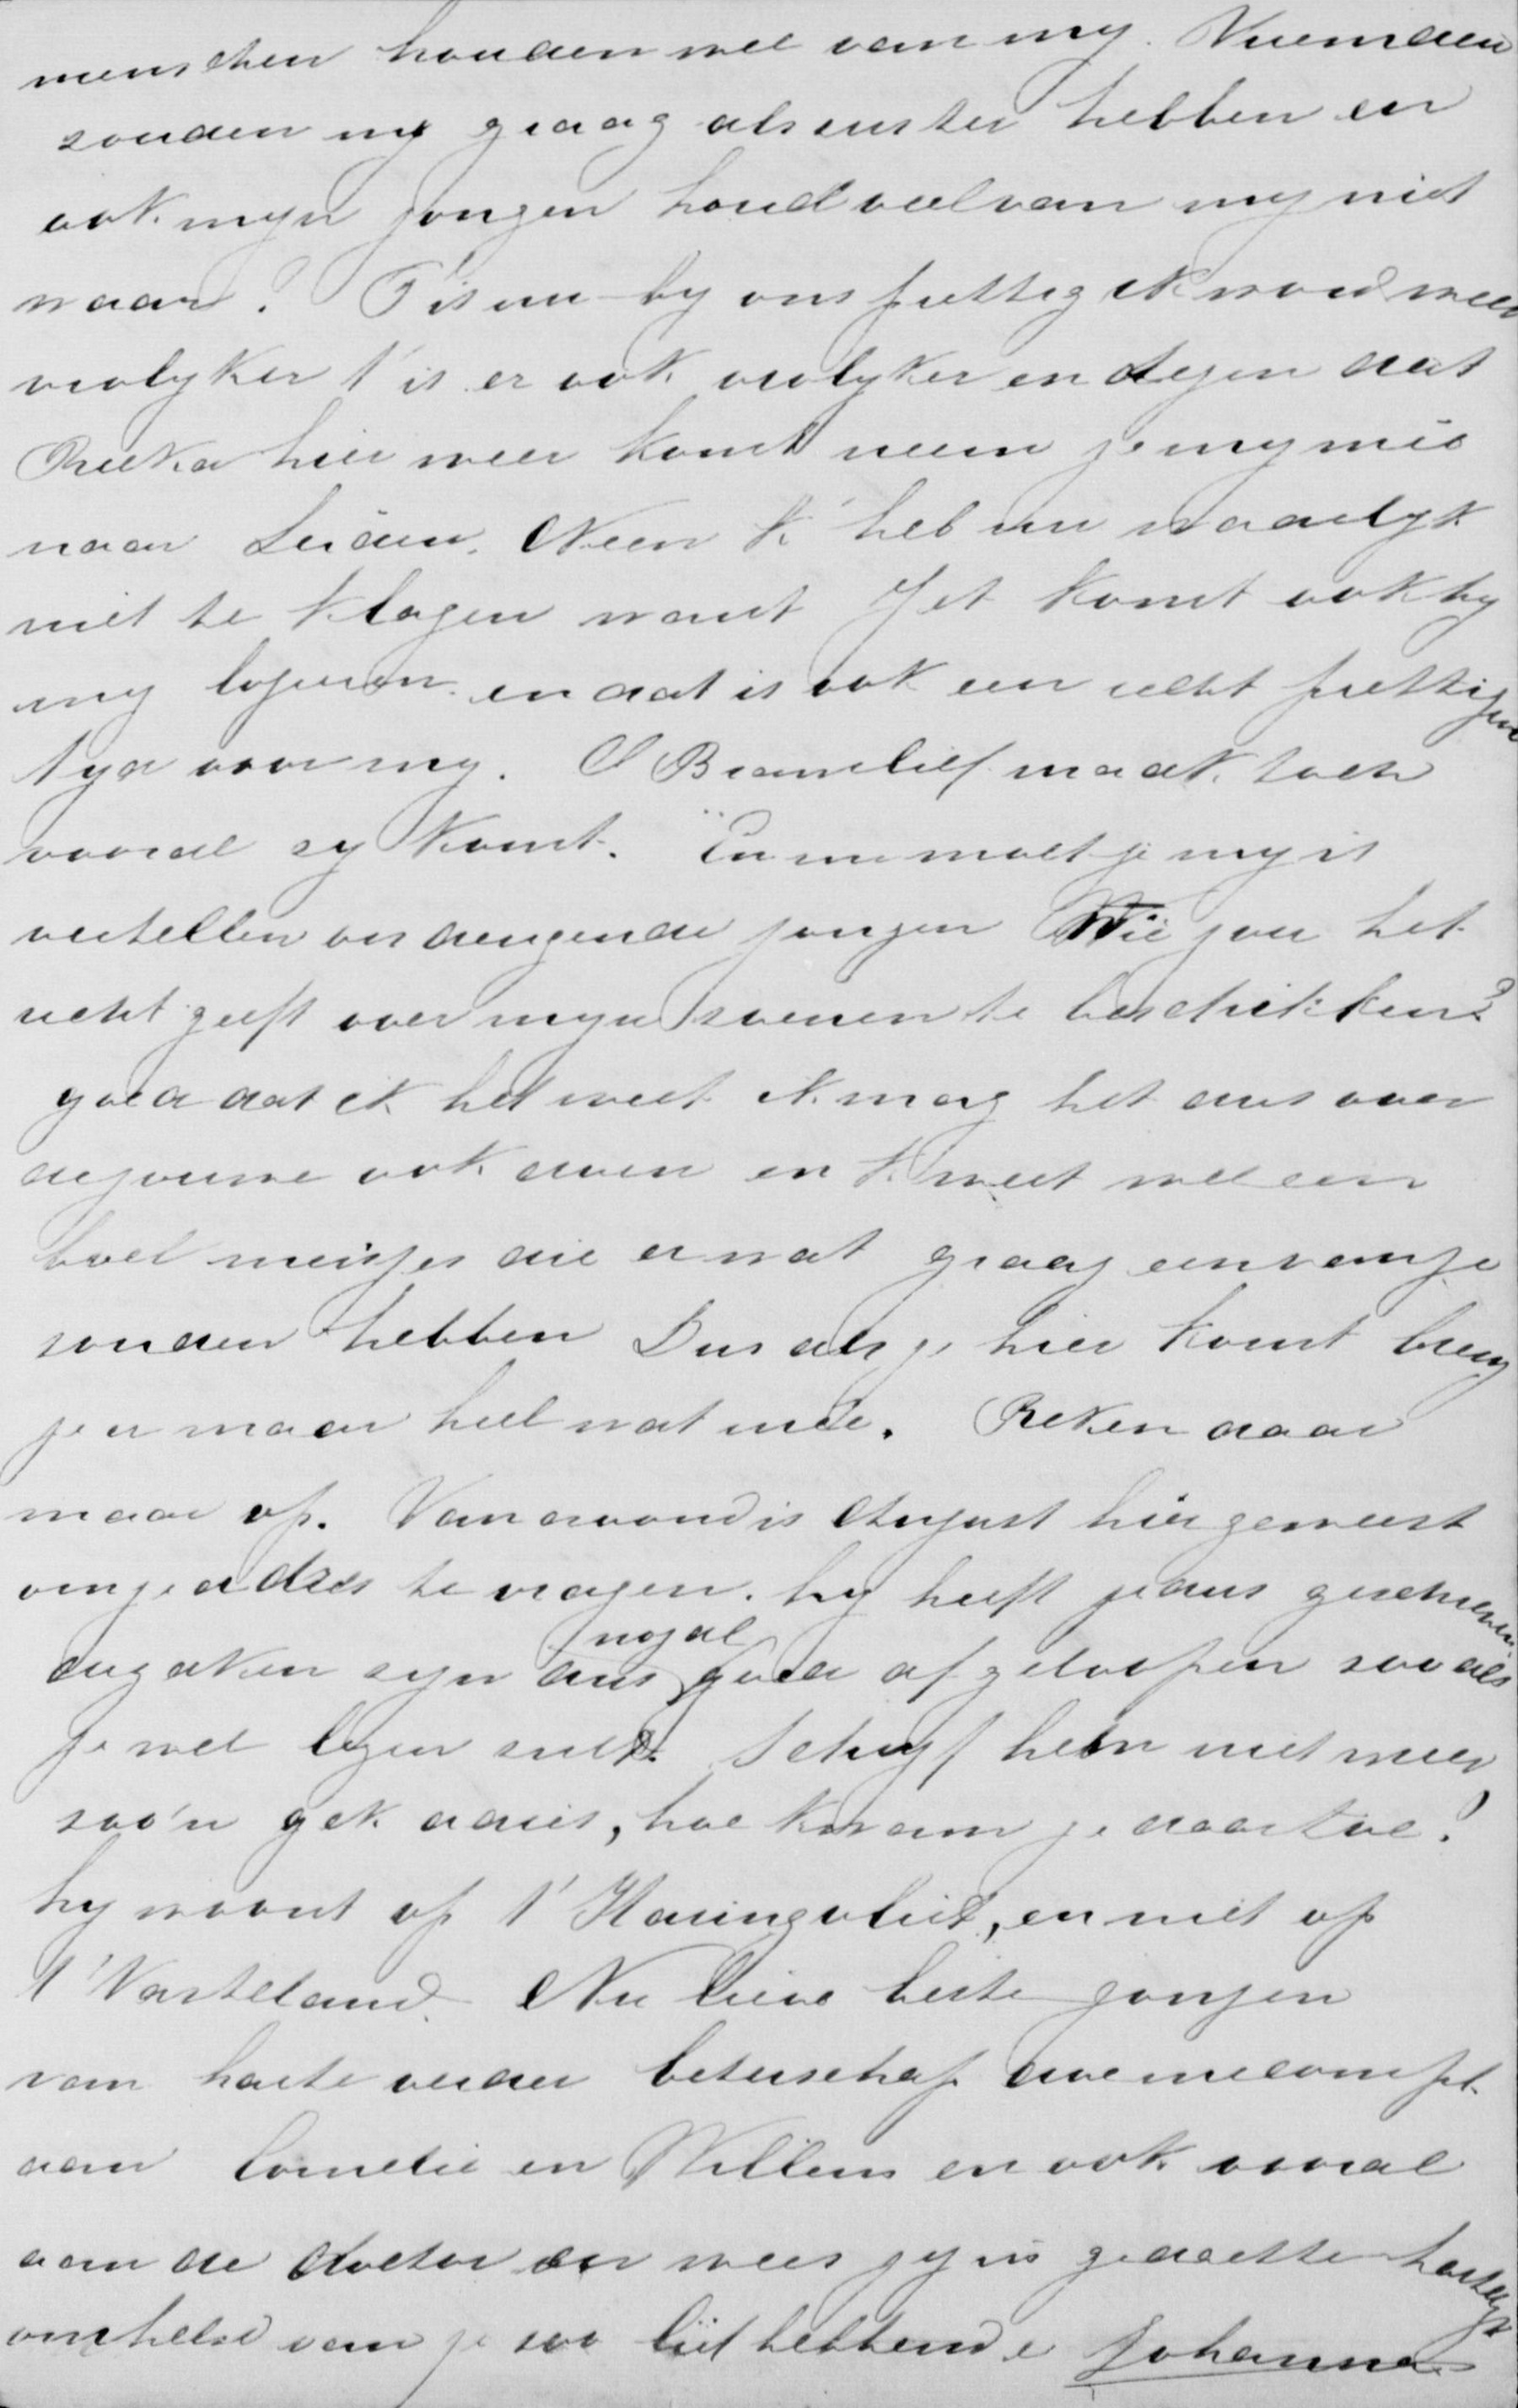 menschen houden wel van my. Vriemden
zouden my graag als zuster hebben en
ook myn jongen houd veel van my niet
waar? T is nu by ons prettig ik word weer
vrolyker t' is er ook vrolyker en tegen dat
Rieka hier weer komt neem je my mêe
naar Leiden. Neen k' heb nu waarlyk
niet te klagen want Jet komt ook by
my logeeren en dat is ook een recht prettigen
tyd voor my. O Bramlief maak toch
vooral zy komt. En nu moet je my is
vertellen ondeugende jongen Wie jou het
recht geeft over myn zoenen te beschikken?
goed dat ik het weet ik mag het dus over
de jouwe ook doen en k weet wel een
boel meisjes die er wat graag een van je
zouden hebben Dus als je hier komt breng
je er maar heel wat mêe. Reken daar
maar op. Van avond is August hier geweest
om je adres te vragen. hy heeft je dus geschreven
de zaken zyn dus nogal goed afgeloopen zoo als
je wel lezen zult. Schryf hem niet meer
zoo'n gek adres, hoe kwam je daar toe?
hy woont op t' Haringvliet, en niet op
t' Vasteland. Nu lieve beste jongen
van harte verder beterschap doe mecompt.
aan Cornelie en Willem en ook vooral
aan de doctor en wees jy in gedachte hartelyk
omhelsd van je zoo liefhebbende Johanna